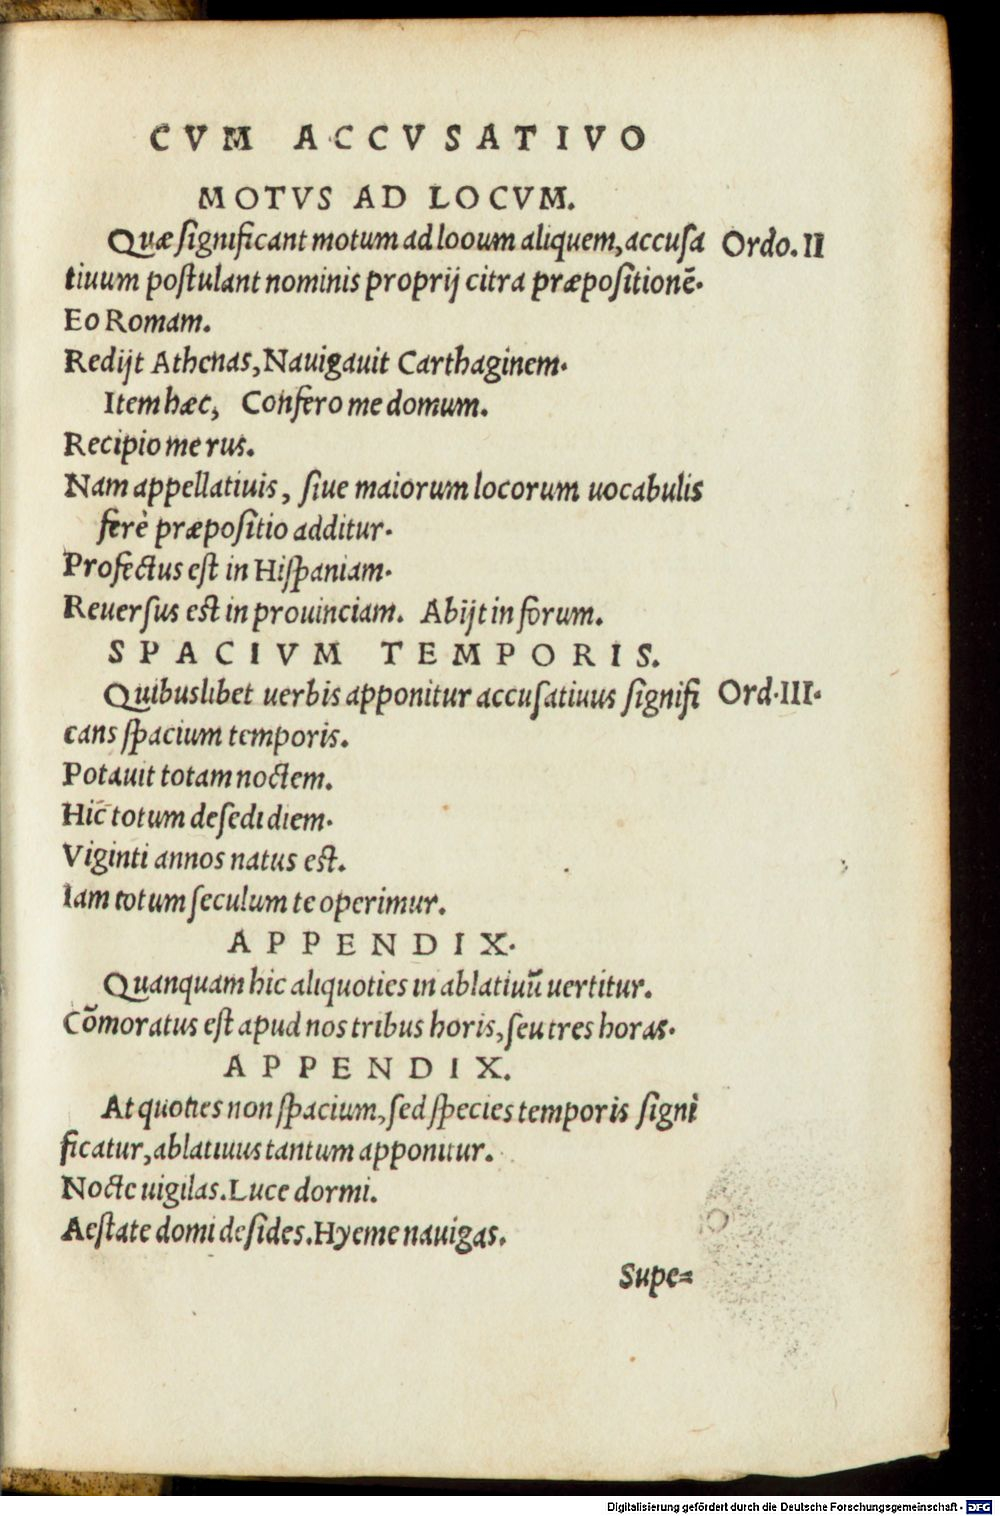 CVM ACCVSATIVO
MOTVS AD LOCVM.
Quæ significant motum ad looum aliquem, accusa Ordo. II
tiuum postulant nominis proprij citra præpositionē.
Eo Romam.
Redijt Athenas, Nauigauit Carthaginem.
Item hæc, Confero me domum.
Recipio me rus.
Nam appellatiuis, siue maiorum locorum uocabulis
ferè præpositio additur.
Profectus est in Hispaniam.
Reuersus est in prouinciam. Abijt in forum.
SPACIVM TEMPORIS.
Quibuslibet uerbis apponitur accusatiuus signifi Ord. III.
cans spacium temporis.
Potauit totam noctem.
Hic totum desedi diem.
Viginti annos natus est.
Iam totum seculum te operimur.
APPENDIX.
Quanquam hic aliquoties in ablatiuū uertitur.
Cōmoratus est apud nos tribus horis, seu tres horas.
APPENDIX.
At quoties non spacium, sed species temporis signi
ficatur, ablatiuus tantum apponitur.
Nocte uigilas. Luce dormi.
Aestate domi desides. Hyeme nauigas.
Supe=
Digitalisierung gefördert durch die Deutsche Forschungsgemeinschaft - DFG